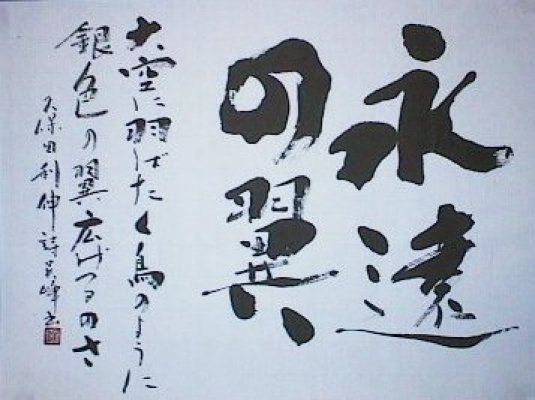 永遠
の翼
大空に羽ばたく鳥のように
銀色の翼広げつるのさ
久保田利伸詩